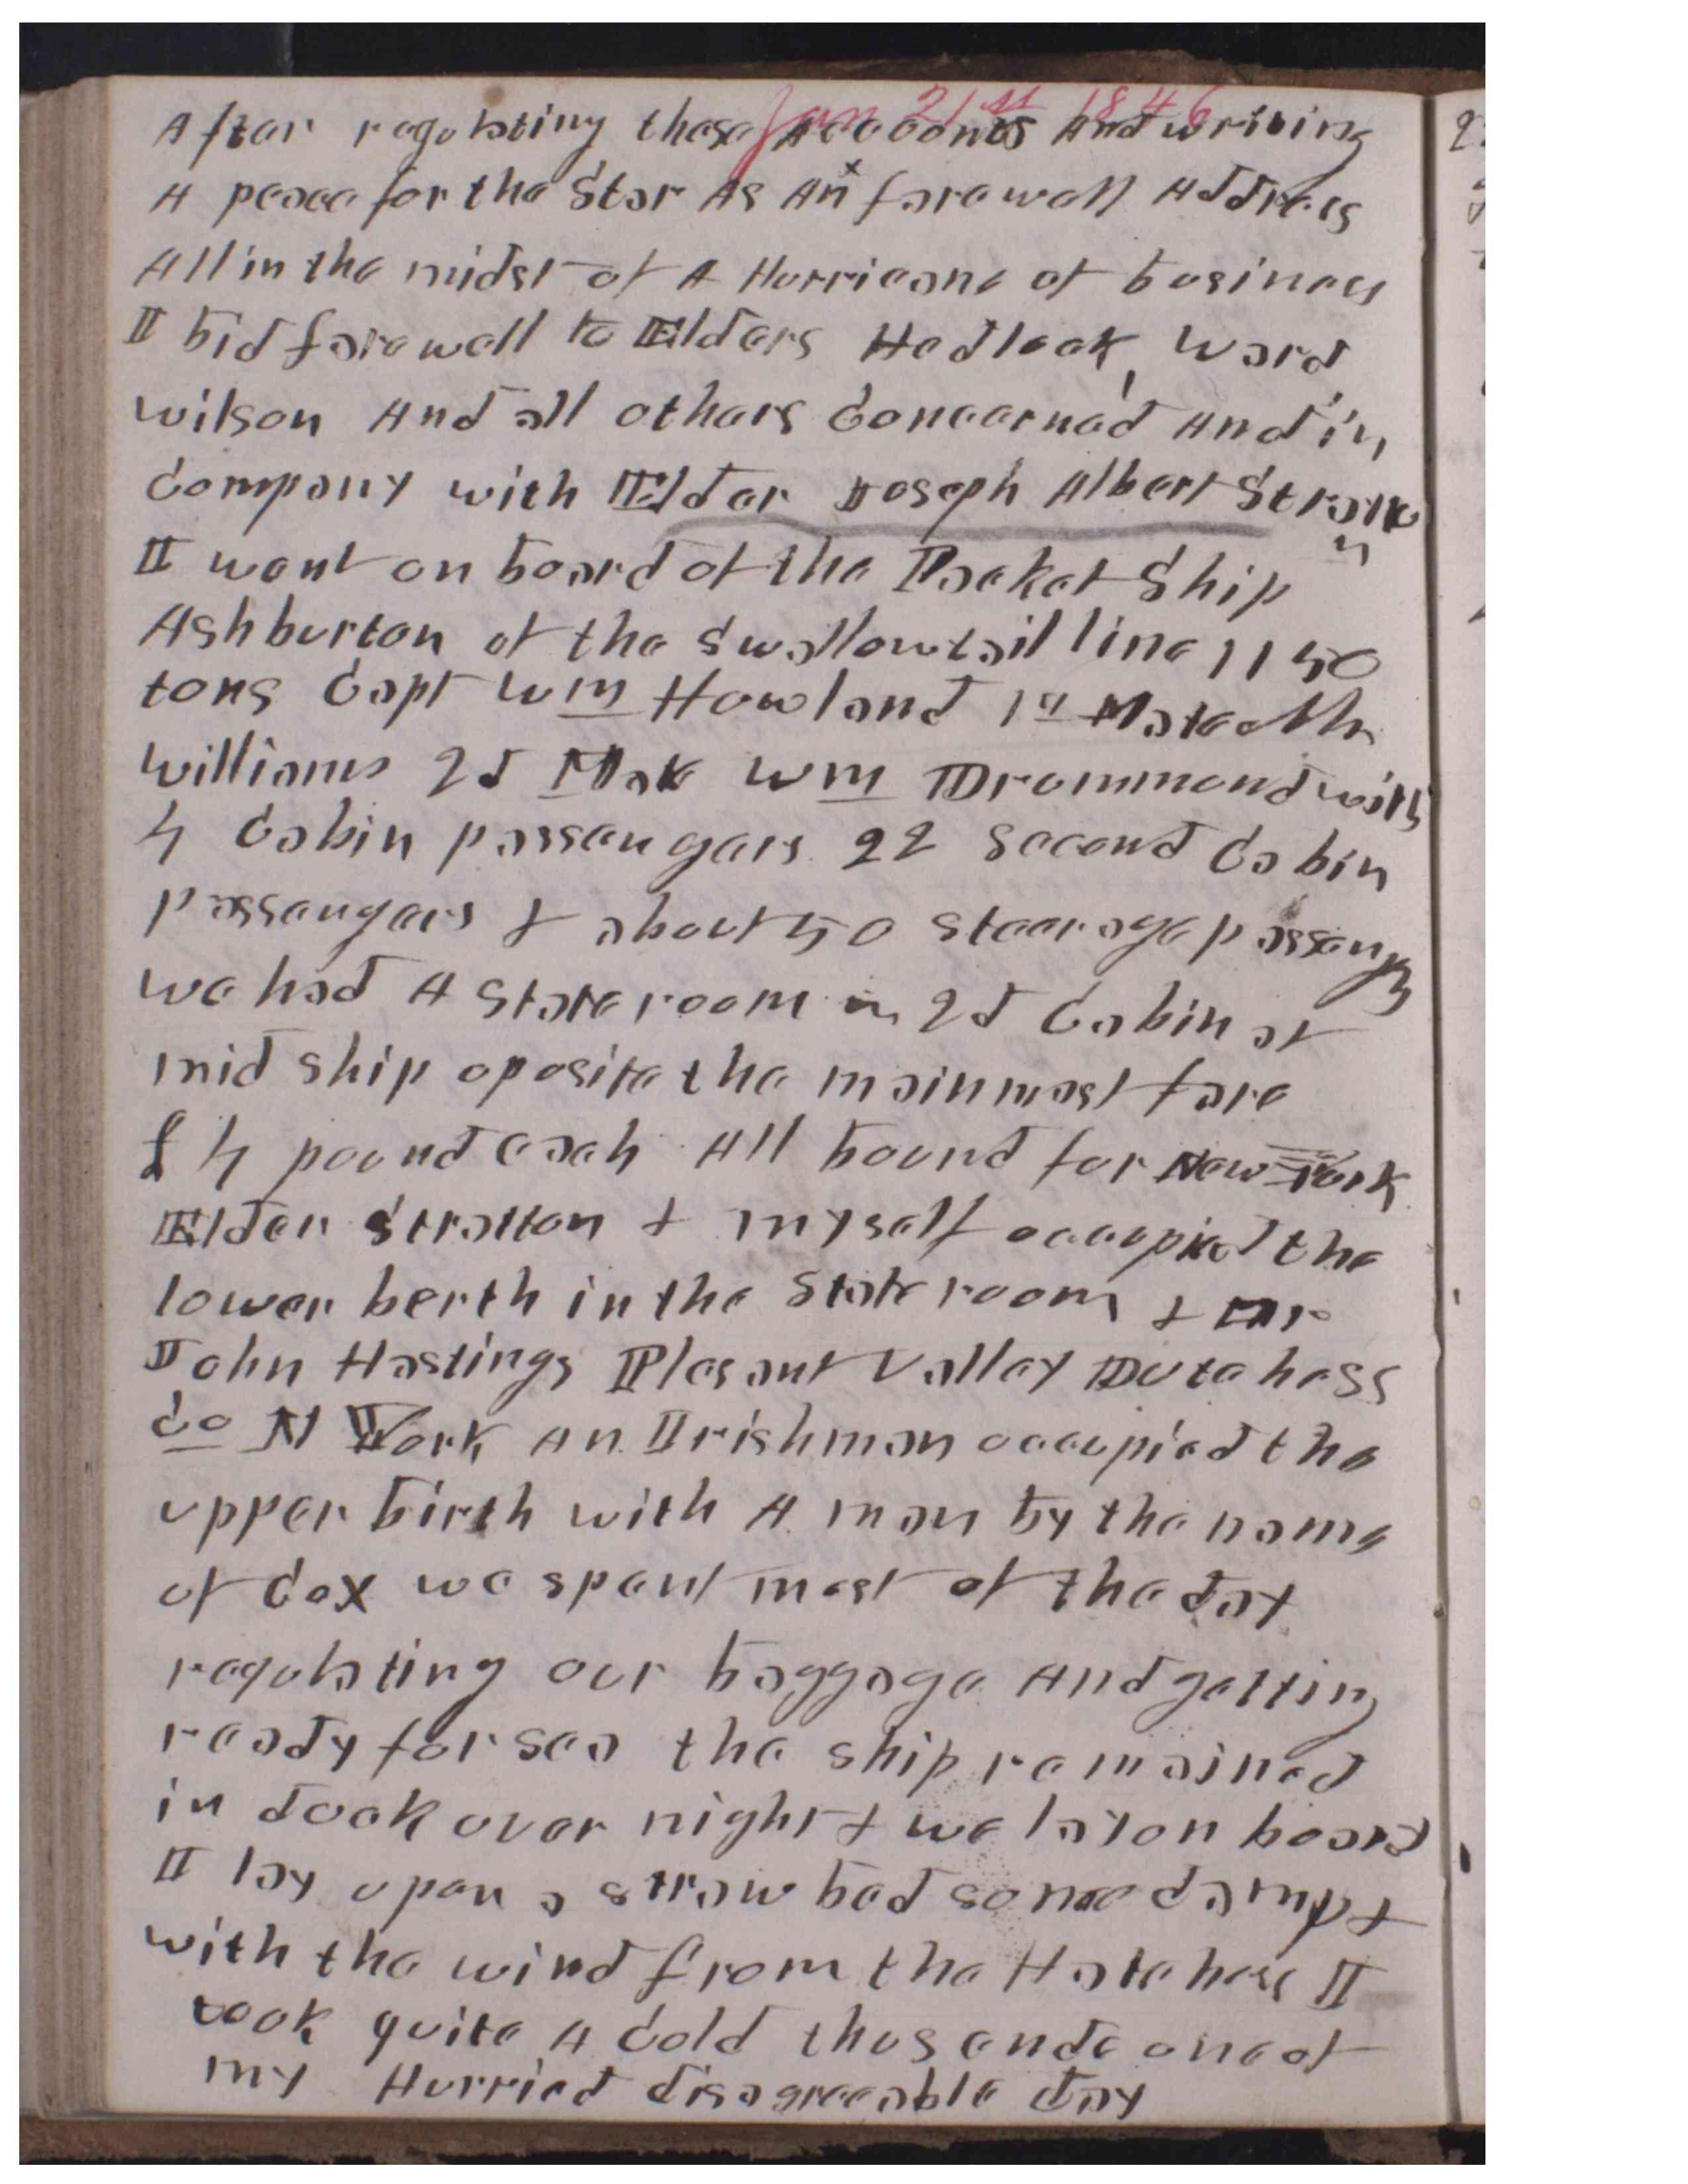 Jan 21st 1846
After regulating these Accounts And writing
A peace for the Star As An farewell Address
All in the midst of A Hurricane of business
I bid farewell to Elders Hedlock, Ward,
Wilson And all others Concerned And in
Company with Elder Joseph Albert Stratton
I went on board of the Packet Ship
Ashburton of the Swallowtail line 1150
tons Capt Wm Howland 1st Mate Mr
Williams 2d Mate Wm Drummond with
5 Cabin passengers 22 Second Cabin
Passengers & about 50 steerage passengers
we had A State room in 2d Cabin at
mid ship oposite the mainmast fare
£5 pound each All bound for New York
Elder Stratton & myself occupied the
lower berth in the State room & Mr
John Hastings Plesant Valley Dutchess
Co N York An Irishman occupied the
upper birth with A man by the name
of Cox we spent most of the day
regulating our baggage And getting
ready for sea the ship remained
in dock over night & we lay on board
I lay upon a straw bed some damp &
with the wind from the Hatchess I
took quite A Cold thus ends one of
my Hurried disagreeable day